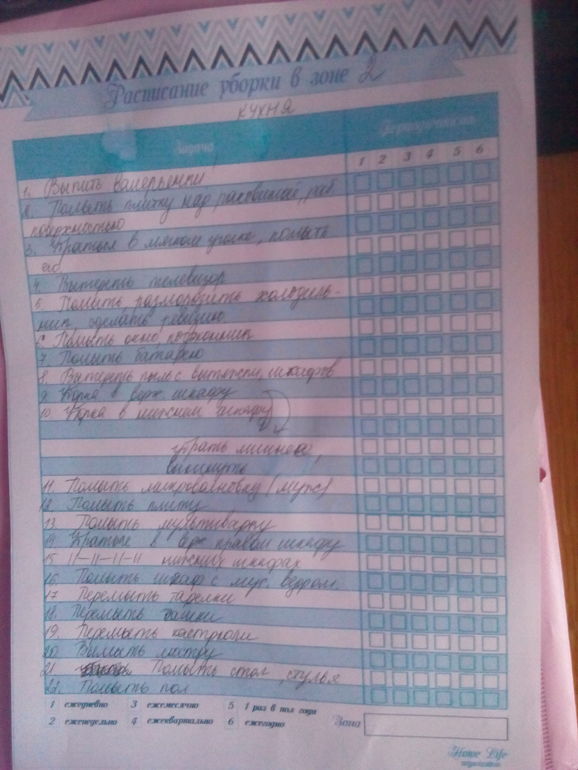 Расписание уборки в зоне 2
КУХНЯ
Задача
Периодичность
1 2 3 4 5 6
1. Выпить валерьянки
2. Помыть плитку над раковиной, раб
поверхностью
3. Убраться в мягком уголке, помыть
его
4. Вытереть телевизор
5. Помыть, разморозить холодиль-
ник, сделать ревизию
6. Помыть окно, подоконник
7. Помыть батарею
8. Вытереть пыль с вытяжки, шкафов
9. Уборка в верх. шкафу
10. Уборка в нижнем шкафу
убрать лишнее,
11. Помыть микроволновку
12. Помыть плиту
13. Помыть мультиварку
14. Убраться в верх. правом шкафу
15 11-11-11-11 нижних шкафах
16 Помыть шкаф с мус. ведром.
17 Перемыть тарелки
18. Перемыть чашки
19. Перемыть кастрюли
20 Вымыть люстру
21 Помыть стол, стулья
22. Помыть пол
1 ежедневно 3 ежемесячно 5 1 раз в пол года
2 еженедельно 4 ежеквартально 6 ежегодно
Зона
Home Life